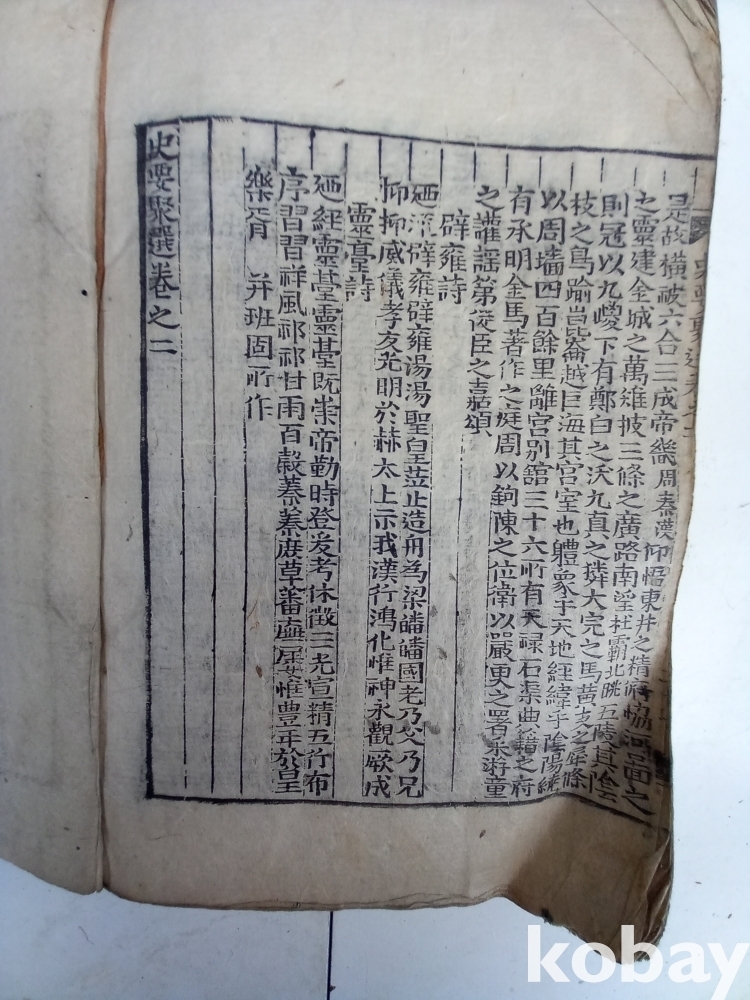 是故橫被六合三成帝畿周秦漢仰悟東井之精俯協河圖之
七靈建金城之萬雉披三條之廣路南望杜霸北眺五陵其陰
則冠以九嵕下有鄭白之沃九真之獜大宛之馬黃支之犀條
枝之鳥踰崑崙越巨海其宮室也軆象乎天地經緯乎陰陽繞
以周墻四百餘里離宮別舘三十六所有天祿石渠典籍之府
有承明金馬著作之庭周以鉤陳之位衛以嚴更之署采遊童
之讙謠第從臣之嘉頌
辟雍詩
廼流辟雍辟雍湯湯聖皇莅止造舟為梁皤皤國老乃父乃兄
抑抑威儀孝友光明於赫太上示我漢行鴻化惟神永觀厥成
靈臺詩
廼經靈臺靈臺旣崇帝勤時登爰考休徵三光宣精五行布
序習習祥風祁祁甘雨百穀蓁蓁庶草蕃廡屢惟豊年於皇
樂胥 幷班固所作
史要聚選卷之二
kobay